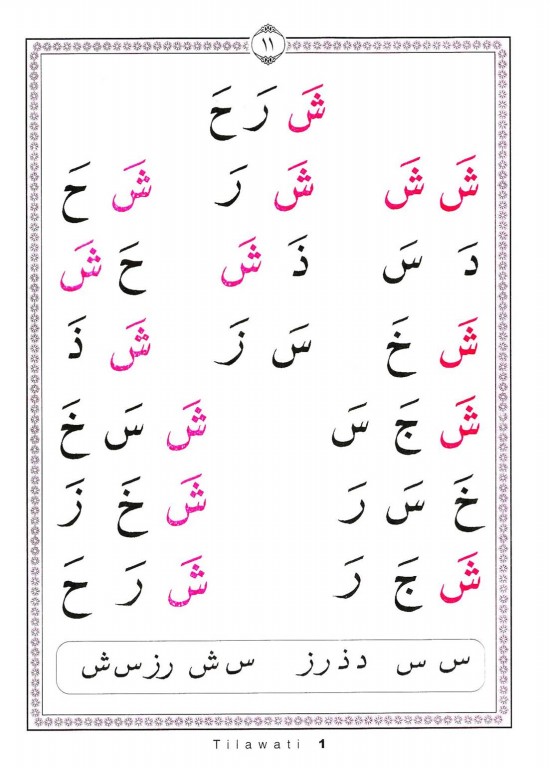 ١١
شَ رَ حَ
شَ شَ شَ رَ شَ حَ
دَ سَ ذَ شَ حَ شَ
شَ خَ سَ زَ شَ ذَ
شَ جَ سَ شَ سَ خَ
خَ سَ رَ شَ خَ زَ
شَ جَ رَ شَ رَ حَ
س س د ذ ر ز س ش ر ز س ش
Tilawati 1